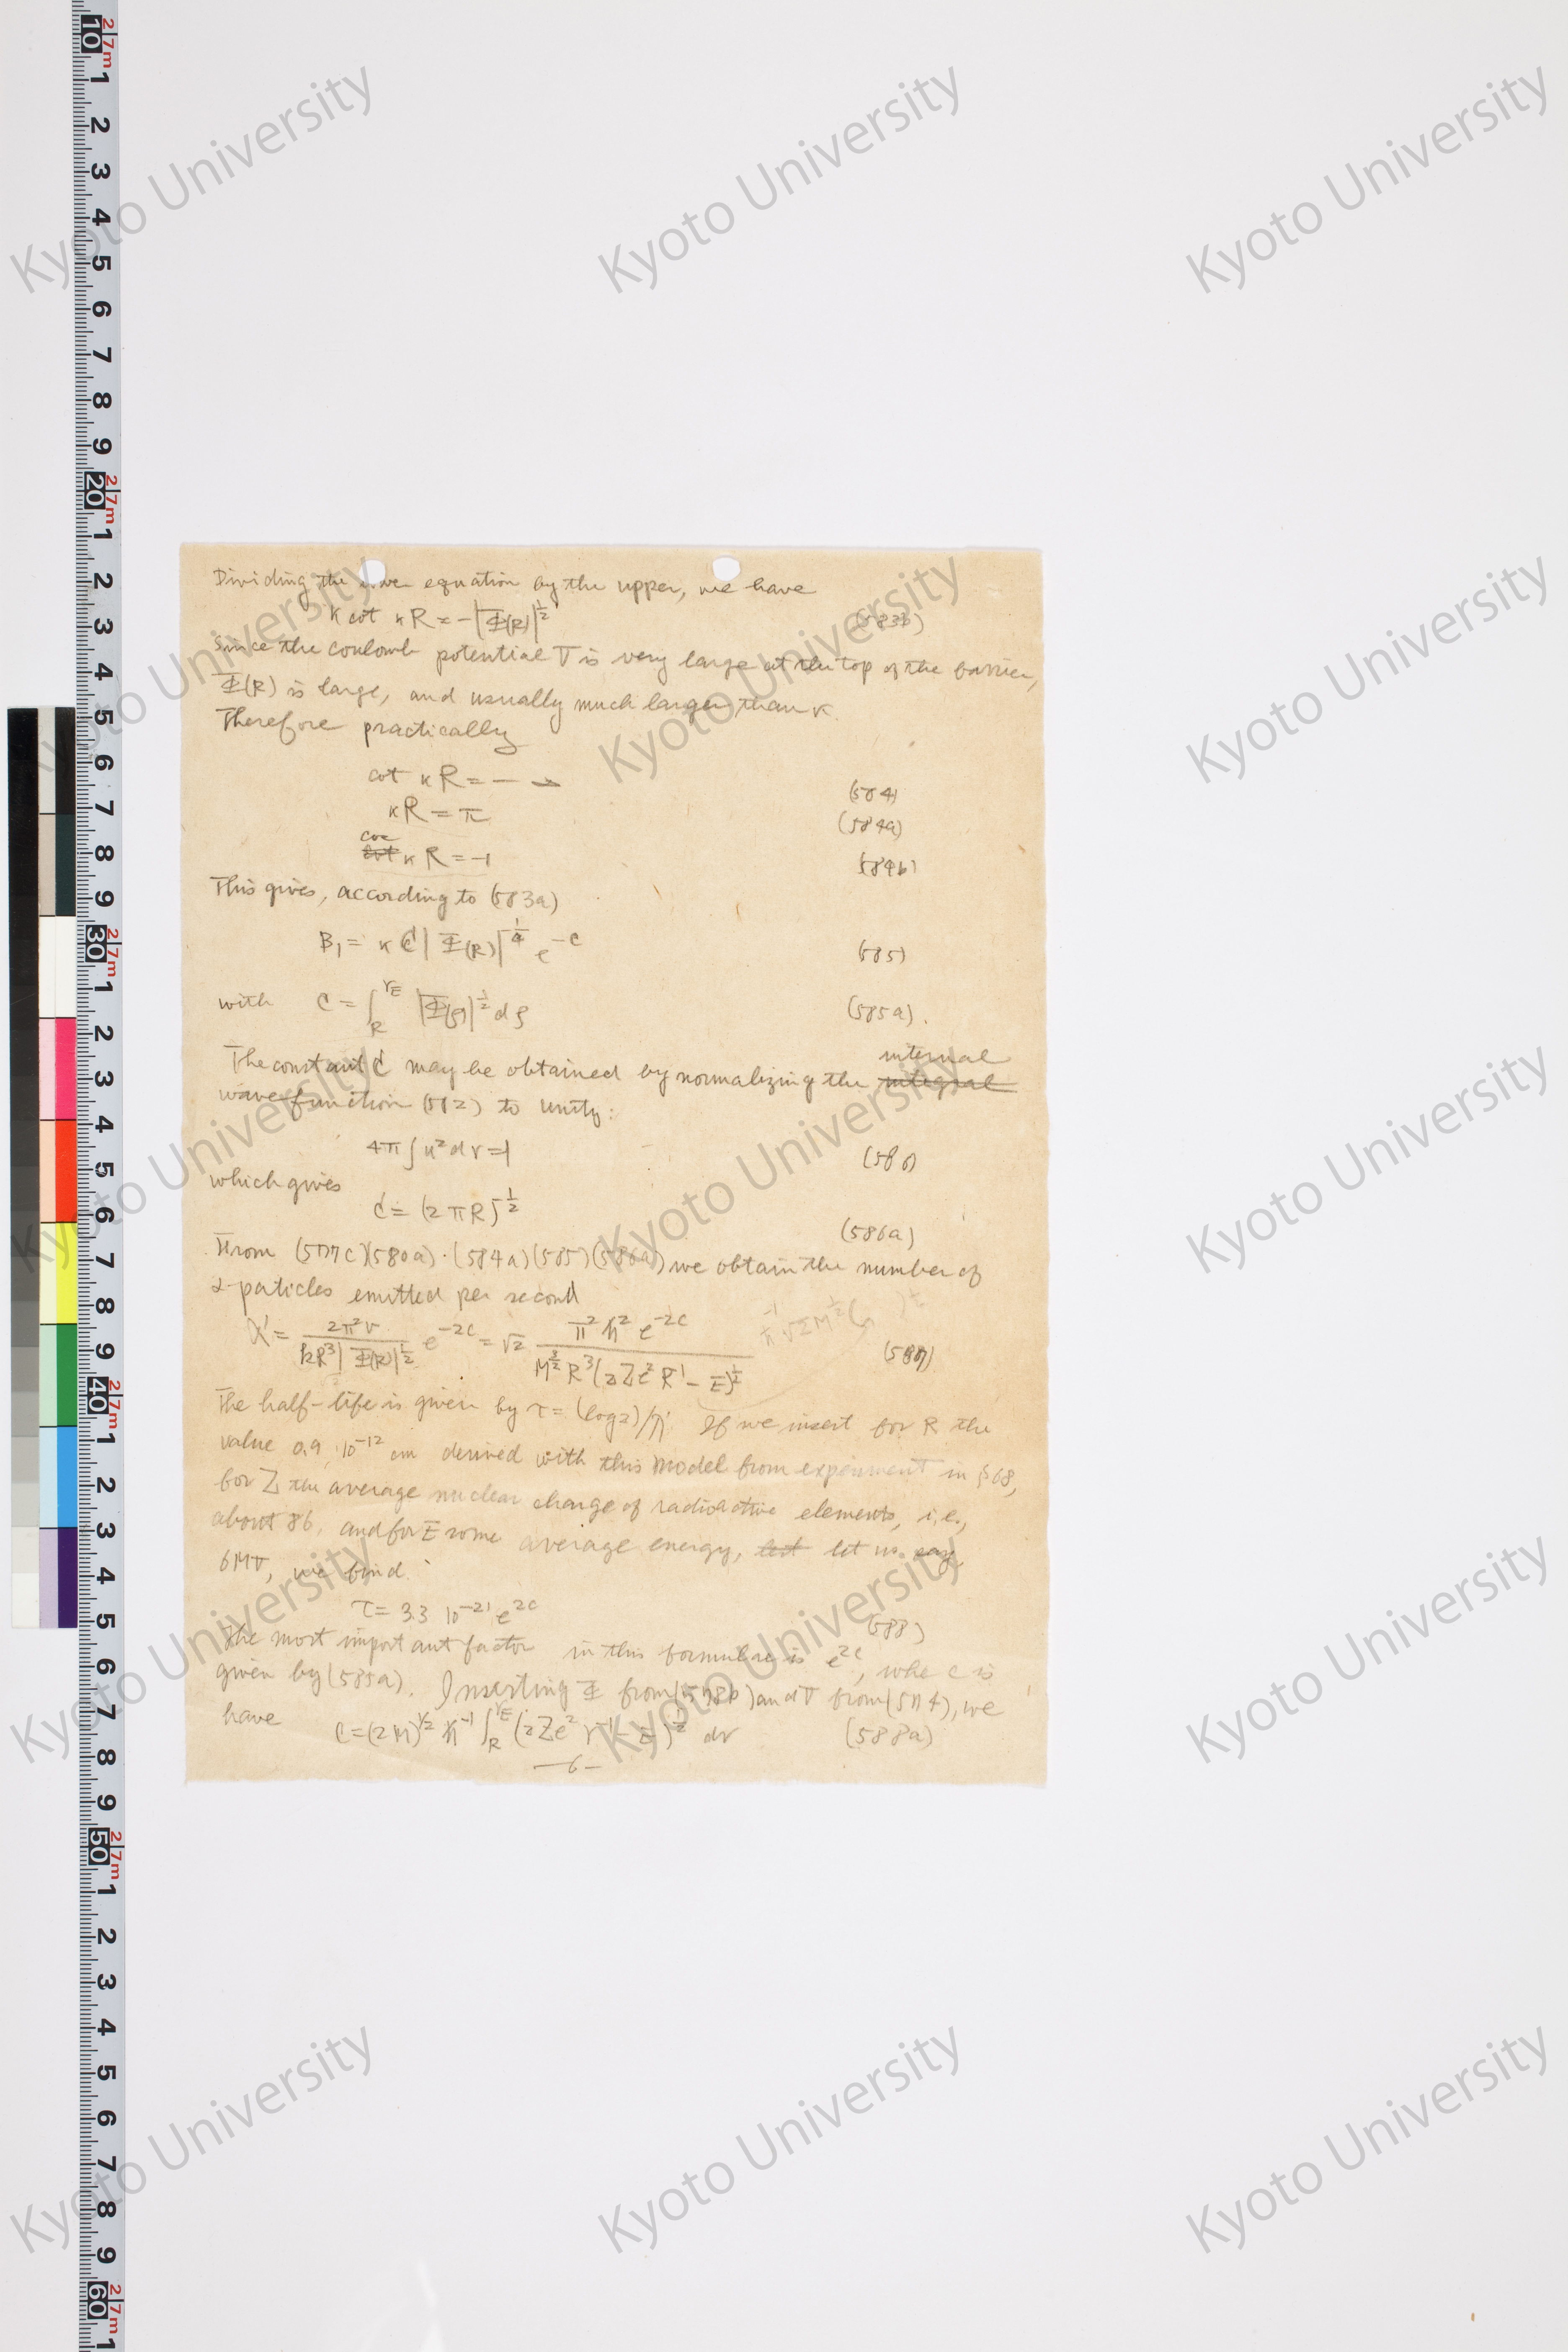 Dividing the lower equation by the upper, we have
κ cot κR = -|Φ(R)|^{1/2} (583b)
Since the coulomb potential V is very large at the top of the barrier,
Φ(R) is large, and usually much larger than κ.
Therefore practically
cot κR = - ∞ (584)
κR = π (584a)
cos κR = -1 (584b)
This gives, according to (583a)
B₁ = κ C' |Φ(R)|^{-1/4} e^{-C} (585)
with C = ∫_R^{r_E} |Φ(ρ)|^{1/2} dρ (585a).
The constant C' may be obtained by normalizing the internal
wave function (582) to unity:
4π ∫ u² dr = 1 (586)
which gives
C' = (2πR)^{-1/2} (586a)
From (577c)(580a)·(584a)(585)(586a) we obtain the number of
α-paticles emitted per second
λ' = 2π²v / kR³|Φ(R)|^{1/2} e^{-2C} = √2 π² ħ² e^{-2C} / M^{3/2} R³ (2Ze² R^{-1} - E)^{1/2} (587)
The half-life is given by τ = (log 2)/λ'. If we insert for R the
value 0.9 10^{-12} cm derived with this model from experiment in §68,
for Z the average nuclear charge of radioactive elements, i.e.,
about 86, and for E some average energy, let us say,
6MV, we find.
τ = 3.3 10^{-21} e^{2C} (588)
The most important factor in this formulae is e^{2C}, whe C is
given by (585a). Inserting Φ from (578b) and V from (574), we
have C = (2M)^{1/2} ħ^{-1} ∫_R^{r_E} (2Ze² r^{-1} - E)^{1/2} dr (588a)
—6—
Kyoto University